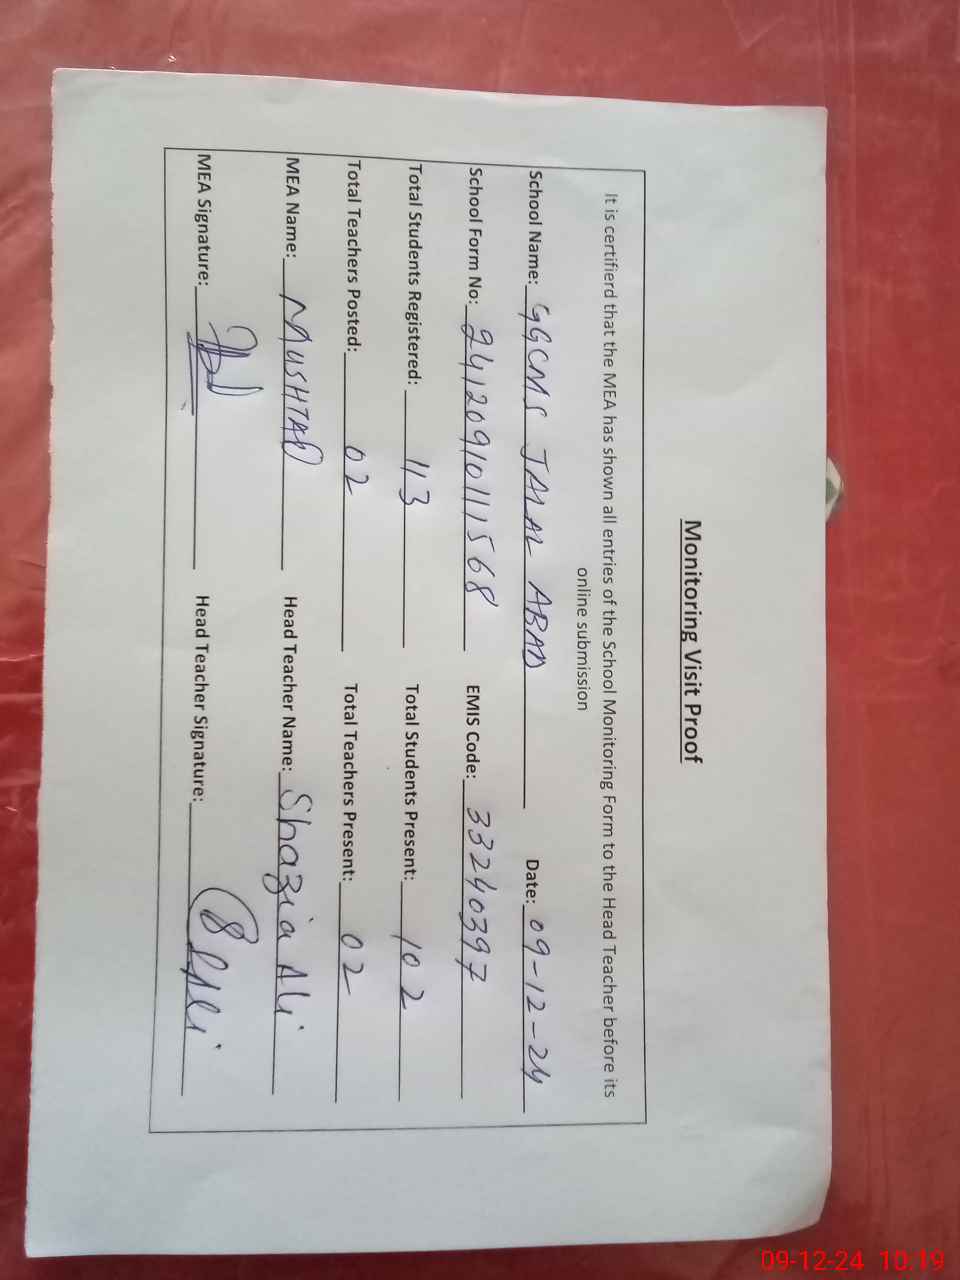 Monitoring Visit Proof
It is certifierd that the MEA has shown all entries of the School Monitoring Form to the Head Teacher before its
online submission
School Name: GGCMS JALAL ABAD Date: 09-12-24
School Form No: 241209101111568 EMIS Code: 33240397
Total Students Registered: 113 Total Students Present: 102
Total Teachers Posted: 02 Total Teachers Present: 02
MEA Name: MUSHTAQ Head Teacher Name: Shazia Ali
MEA Signature: Head Teacher Signature:
09-12-24 10:19